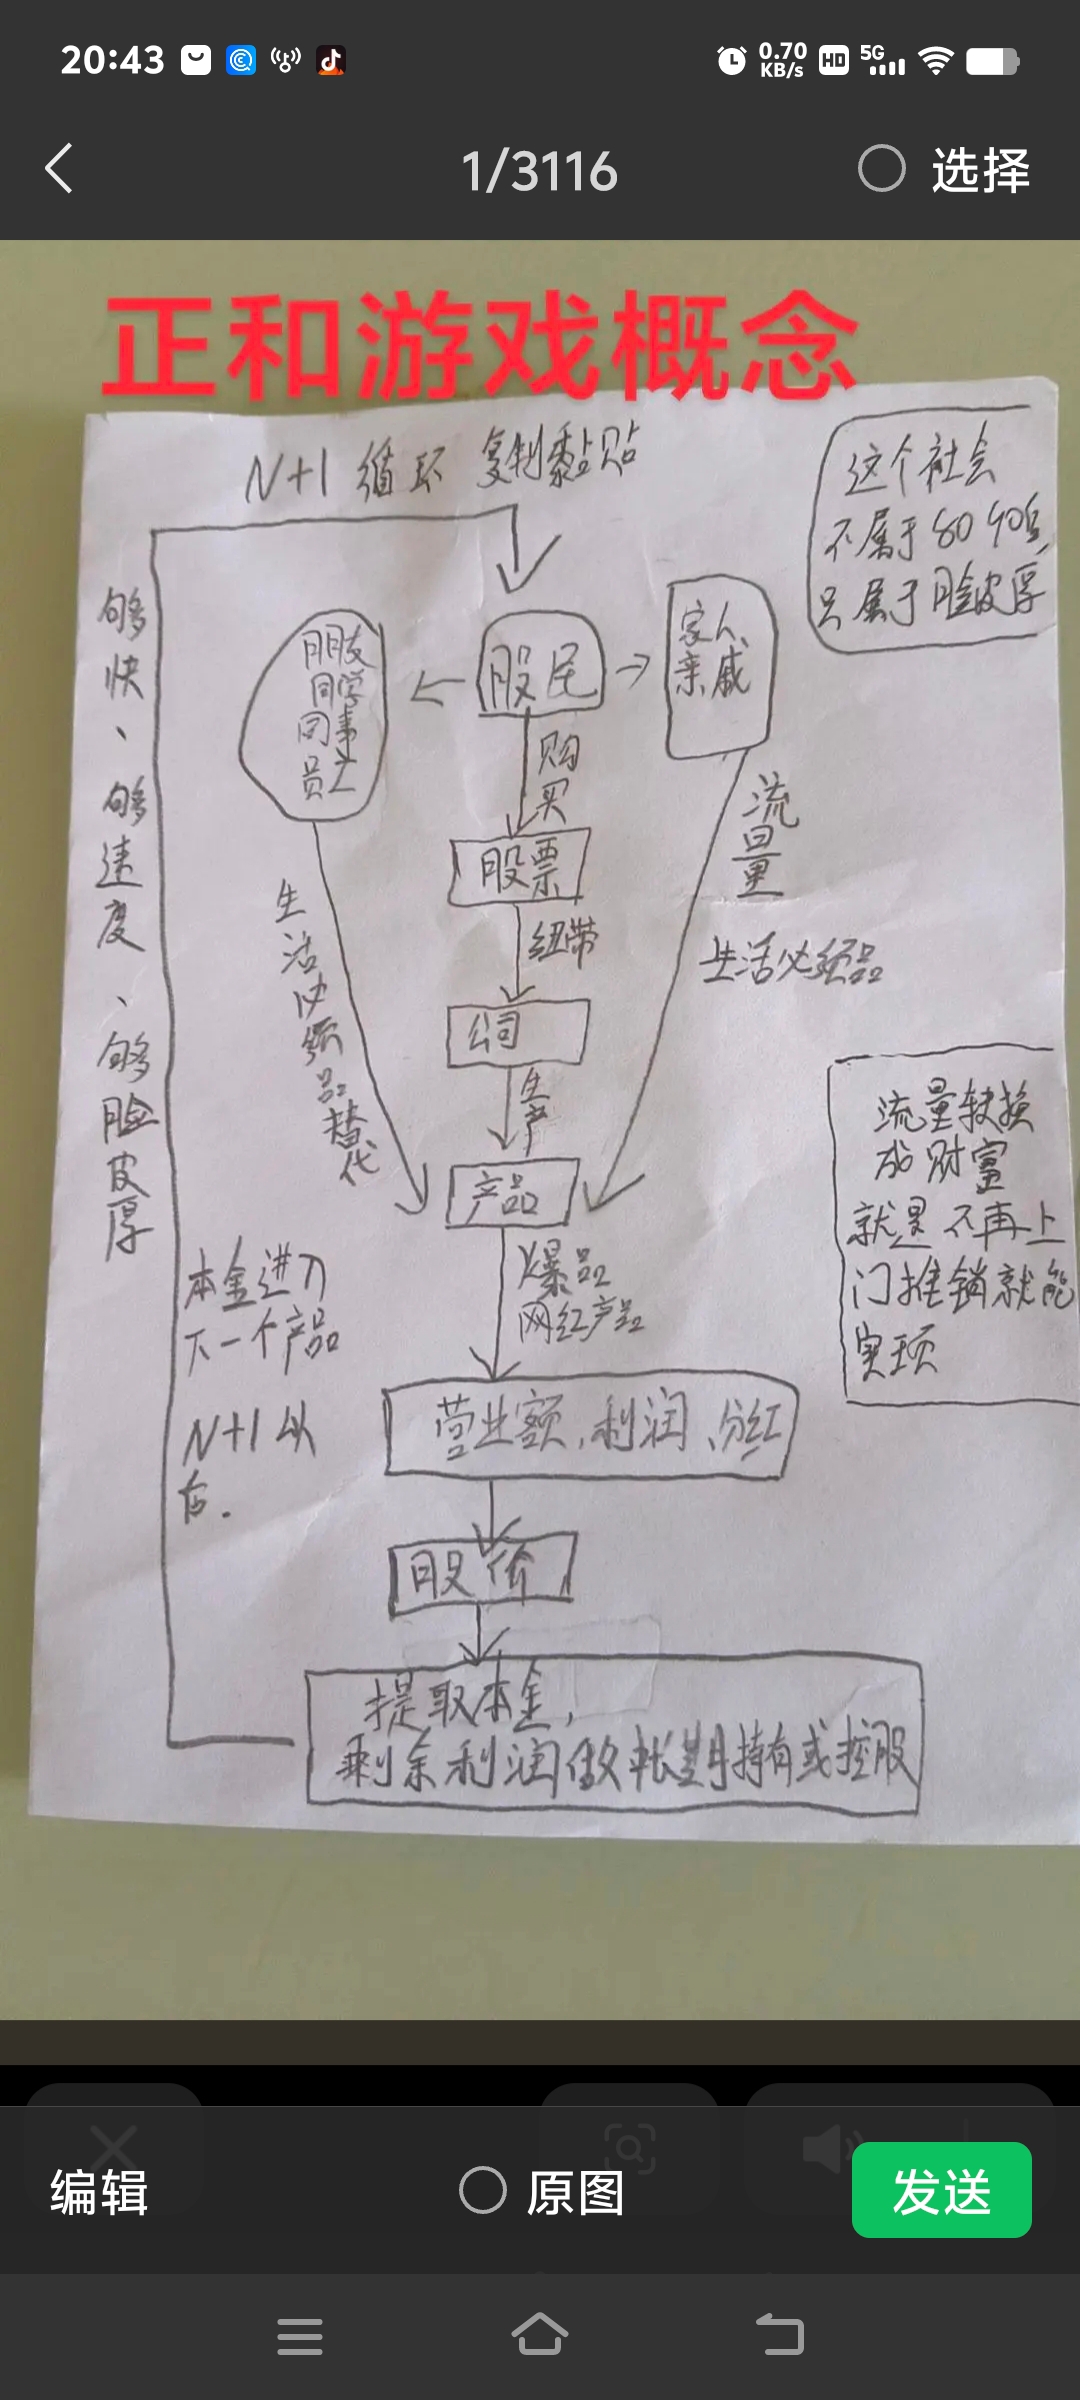 20:43
0.70
KB/s
HD
5G
1/3116
选择
正和游戏概念
N+1 循环 复制黏贴
这个社会
不属于80 90后,
只属于脸皮厚
够快、够速度、够脸皮厚
朋友
同学
同事
员工
股民
家人、
亲戚
购买
股票
流量
纽带
生活必须品替代
生活必须品
公司
生产
产品
流量转换
成财富
就是不再上
门推销就能
实现
爆品
网红产品
本金进入
下一个产品
N+1以
后.
营业额,利润、分红
股价
提取本金,
剩余利润做长期持有或控股
编辑
原图
发送